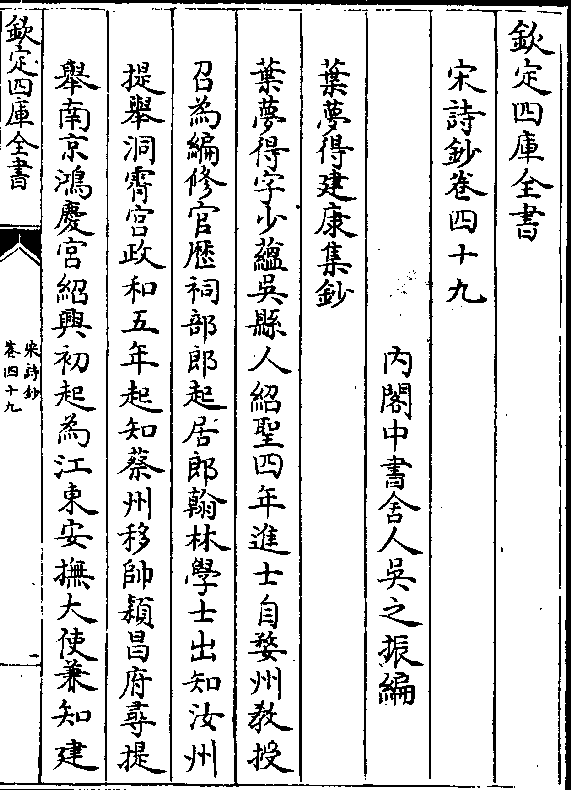 欽定四庫全書
宋詩鈔卷四十九
內閣中書舍人吳之振編
葉夢得建康集鈔
葉夢得字少蘊吳縣人紹聖四年進士自婺州教授
召為編修官歷祠部郎起居郎翰林學士出知汝州
提舉洞霄宮政和五年起知蔡州移帥潁昌府尋提
舉南京鴻慶宮紹興初起為江東安撫大使兼知建
欽定四庫全書
宋詩鈔
卷四十九
一